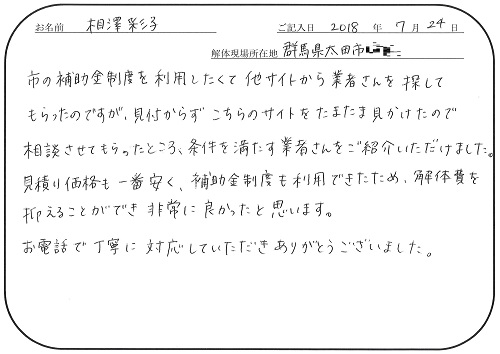 お名前 相澤彩子 ご記入日 2018 年 7 月 24 日
解体現場所在地 群馬県太田市
市の補助金制度を利用したくて他サイトから業者さんを探して
もらったのですが、見付からずこちらのサイトをたまたま見かけたので
相談させてもらったところ、条件を満たす業者さんをご紹介いただけました。
見積り価格も一番安く、補助金制度も利用できたため、解体費を
抑えることができ非常に良かったと思います。
お電話で丁寧に対応していただきありがとうございました。